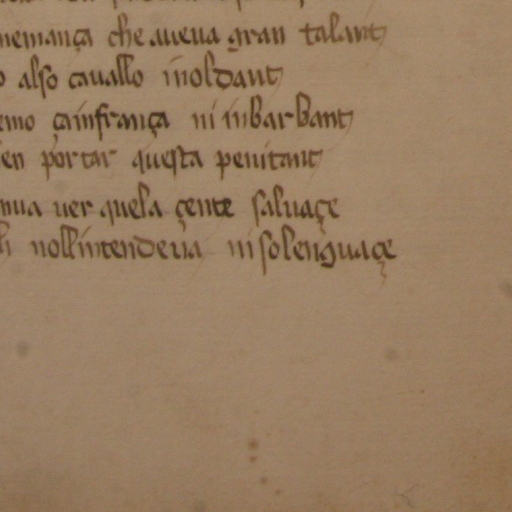 nemança che aueua gran talant
o also cauallo inoldant
emo çainfrança ni inbarbant
en portar questa penitant
nua uer quela çente saluaçe
li nollintenderia nisolenguaçe